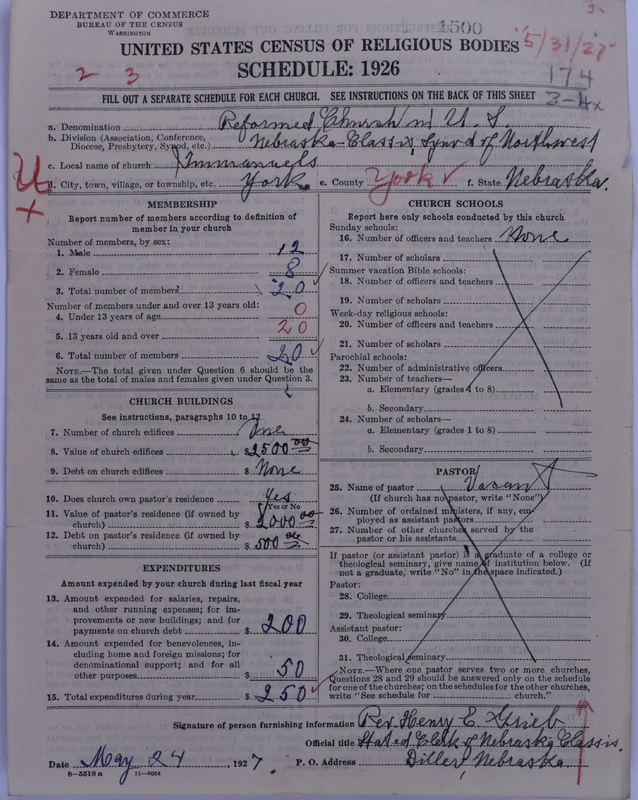 DEPARTMENT OF COMMERCE
BUREAU OF THE CENSUS
WASHINGTON
1500
5/31/27
UNITED STATES CENSUS OF RELIGIOUS BODIES
SCHEDULE: 1926
2 3
174
3-4x
FILL OUT A SEPARATE SCHEDULE FOR EACH CHURCH. SEE INSTRUCTIONS ON THE BACK OF THIS SHEET
a. Denomination Reformed Church in U. S.
b. Division (Association, Conference, Diocese, Presbytery, Synod, etc.) Nebraska Classis, Synod of Northwest
c. Local name of church Immanuels
d. City, town, village, or township, etc. York e. County York f. State Nebraska.
MEMBERSHIP
Report number of members according to definition of
member in your church
Number of members, by sex:
1. Male 12
2. Female 8
3. Total number of members 20
Number of members under and over 13 years old:
4. Under 13 years of age 0
5. 13 years old and over 20
6. Total number of members 20
NOTE.—The total given under Question 6 should be
same as the total of males and females given under Question 3.
CHURCH BUILDINGS
See instructions, paragraphs 10 to 12
7. Number of church edifices One
8. Value of church edifices $ 2500 00
9. Debt on church edifices $ None
10. Does church own pastor's residence Yes
Yes or No
11. Value of pastor's residence (if owned by
church) $ 2000 00
12. Debt on pastor's residence (if owned by
church) $ 500 00
EXPENDITURES
Amount expended by your church during last fiscal year
13. Amount expended for salaries, repairs,
and other running expenses; for im-
provements or new buildings; and for
payments on church debt $ 200
14. Amount expended for benevolences, in-
cluding home and foreign missions; for
denominational support; and for all
other purposes $ 50
15. Total expenditures during year $ 250
CHURCH SCHOOLS
Report here only schools conducted by this church
Sunday schools:
16. Number of officers and teachers None
17. Number of scholars
Summer vacation Bible schools:
18. Number of officers and teachers
19. Number of scholars
Week-day religious schools:
20. Number of officers and teachers
21. Number of scholars
Parochial schools:
22. Number of administrative officers
23. Number of teachers—
a. Elementary (grades 1 to 8)
b. Secondary
24. Number of scholars—
a. Elementary (grades 1 to 8)
b. Secondary
PASTOR
25. Name of pastor Vacant
(If church has no pastor, write "None")
26. Number of ordained ministers, if any, em-
ployed as assistant pastors
27. Number of other churches served by the
pastor or his assistants
If pastor (or assistant pastor) is a graduate of a college or
theological seminary, give name of institution below. (If
not a graduate, write "No" in the space indicated.)
Pastor:
28. College
29. Theological seminary
Assistant pastor:
30. College
31. Theological seminary
NOTE.—Where one pastor serves two or more churches,
Questions 28 and 29 should be answered only on the schedule
for one of the churches; on the schedules for the other churches,
write "See schedule for church."
Signature of person furnishing information Rev Henry E. Grieb
Official title Stated Clerk of Nebraska Classis.
Date May 24, 1927. P. O. Address Diller, Nebraska
8—5518 a 11—9054